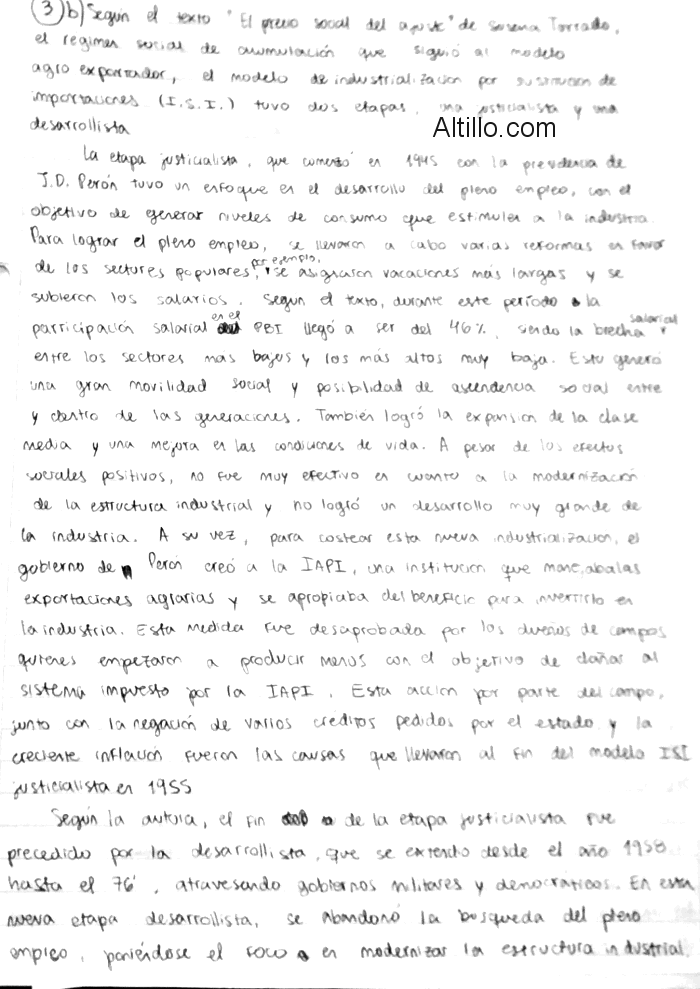 3) b) Según el texto "El precio social del ajuste" de Susana Torrado,
el regimen social de acumulación que siguió al modelo
agro exportador, el modelo de industrialización por sustitución de
importaciones (I.S.I.) tuvo dos etapas, una justicialista y una
desarrollista
Altillo.com
La etapa justicialista, que comenzó en 1945 con la presidencia de
J.D. Perón tuvo un enfoque en el desarrollo del pleno empleo, con el
objetivo de generar niveles de consumo que estimulen a la industria.
Para lograr el pleno empleo, se llevaron a cabo varias reformas en favor
de los sectores populares, por ejemplo, se asignaron vacaciones más largas y se
subieron los salarios. Segun el texto, durante este período la
participación salarial en el PBI llegó a ser del 46%, siendo la brecha salarial
entre los sectores mas bajos y los más altos muy baja. Esto generó
una gran movilidad social y posibilidad de ascendencia social entre
y dentro de las generaciones. También logró la expansion de la clase
media y una mejora en las condiciones de vida. A pesar de los efectos
sociales positivos, no fue muy efectivo en cuanto a la modernización
de la estructura industrial y no logró un desarrollo muy grande de
la industria. A su vez, para costear esta nueva industrialización, el
gobierno de Perón creó a la IAPI, una institución que manejaba las
exportaciones agrarias y se apropiaba del beneficio para invertirlo en
la industria. Esta medida fue desaprobada por los dueños de campos
quienes empezaron a producir menos con el objetivo de dañar al
sistema impuesto por la IAPI. Esta acción por parte del campo,
junto con la negación de varios créditos pedidos por el estado y la
creciente inflación fueron las causas que llevaron al fin del modelo ISI
justicialista en 1955
Según la autora, el fin de la etapa justicialista fue
precedido por la desarrollista, que se extendió desde el año 1958
hasta el 76', atravesando gobiernos militares y democráticos. En esta
nueva etapa desarrollista, se abandonó la busqueda del pleno
empleo, poniéndose el foco en modernizar la estructura industrial.